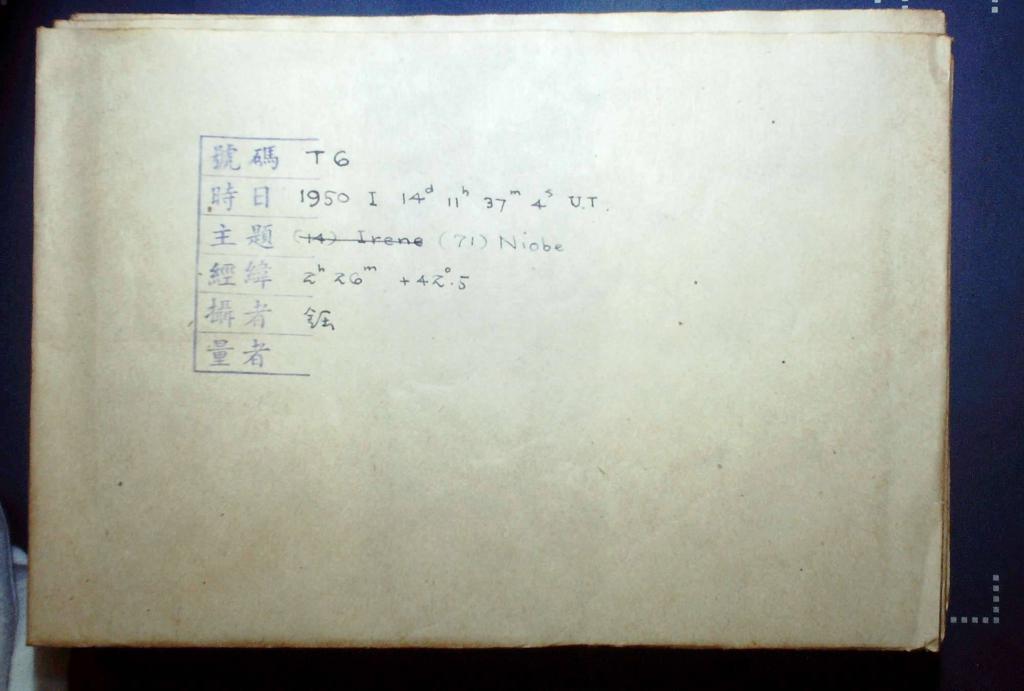 號碼 T 6
時日 1950 I 14ᵈ 11ʰ 37ᵐ 4ˢ U.T.
主題 (14) Irene (71) Niobe
經緯 2ʰ 26ᵐ +42°.5
攝者
量者